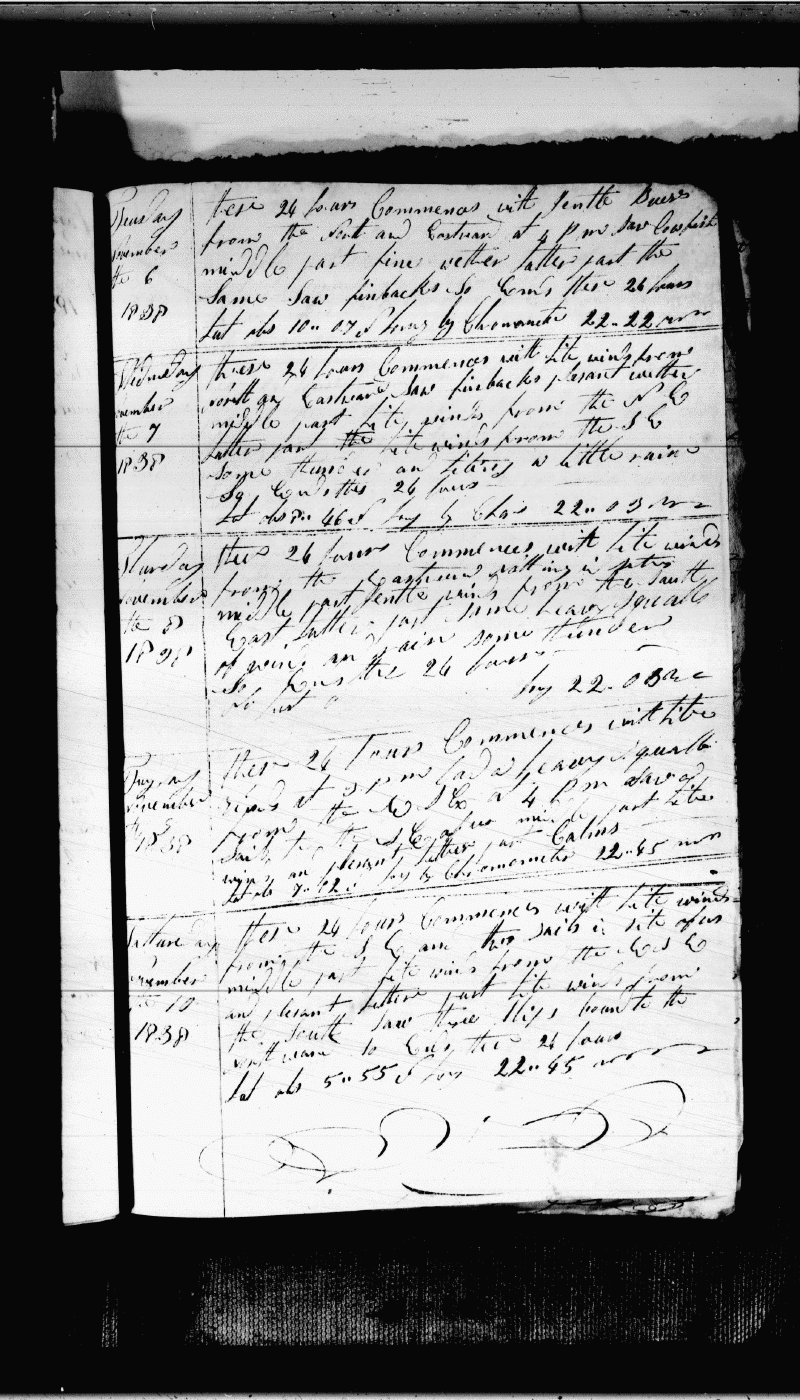 Tuesday
November
the 6
1838
these 24 hours Commences with gentle Breses
from the North and Eastward at 4 P m Saw Cowfish
middle part fine wether latter part the
Same Saw finbacks So Ends these 24 hours
Lat obs 10 07 S Long by Chronometer 22 22
Wednesday
November
the 7
1838
these 24 hours Commences with lite winds from
north an Eastward Saw finbacks plesant wether
middle part lite winds from the N E
latter part the lite winds from the S E
Some thunder an liting a little raine
So Ends thes 24 hours
Lat obs 8 46 S long by Chro 22 03
November
the 8
1838
thes 24 hours Commences with lite winds
from the Eastward
middle part gentle winds from the South
East latter part Some heavy Squalls
of wind an rain some thunder
So Ends the 24 hours
long 22 03
November
1838
thes 24 hours Commences with lite
winds at 3 P m had a heavy Squall
from the E S E at 4 P m Saw a
Sail to the S E of us middle part lite
winds an plesant latter part Calms
Lat obs 7 02 S long by Chronometer 22 45
Satturday
November
the 10
1838
these 24 hours Commences with lite winds
from the S E an two Sails in Site of us
middle part lite winds from the E S E
an plesant latter part lite winds from
the South Saw three Ships bound to the
northward So Ends thes 24 hours
Lat obs 5 55 S long 22 45